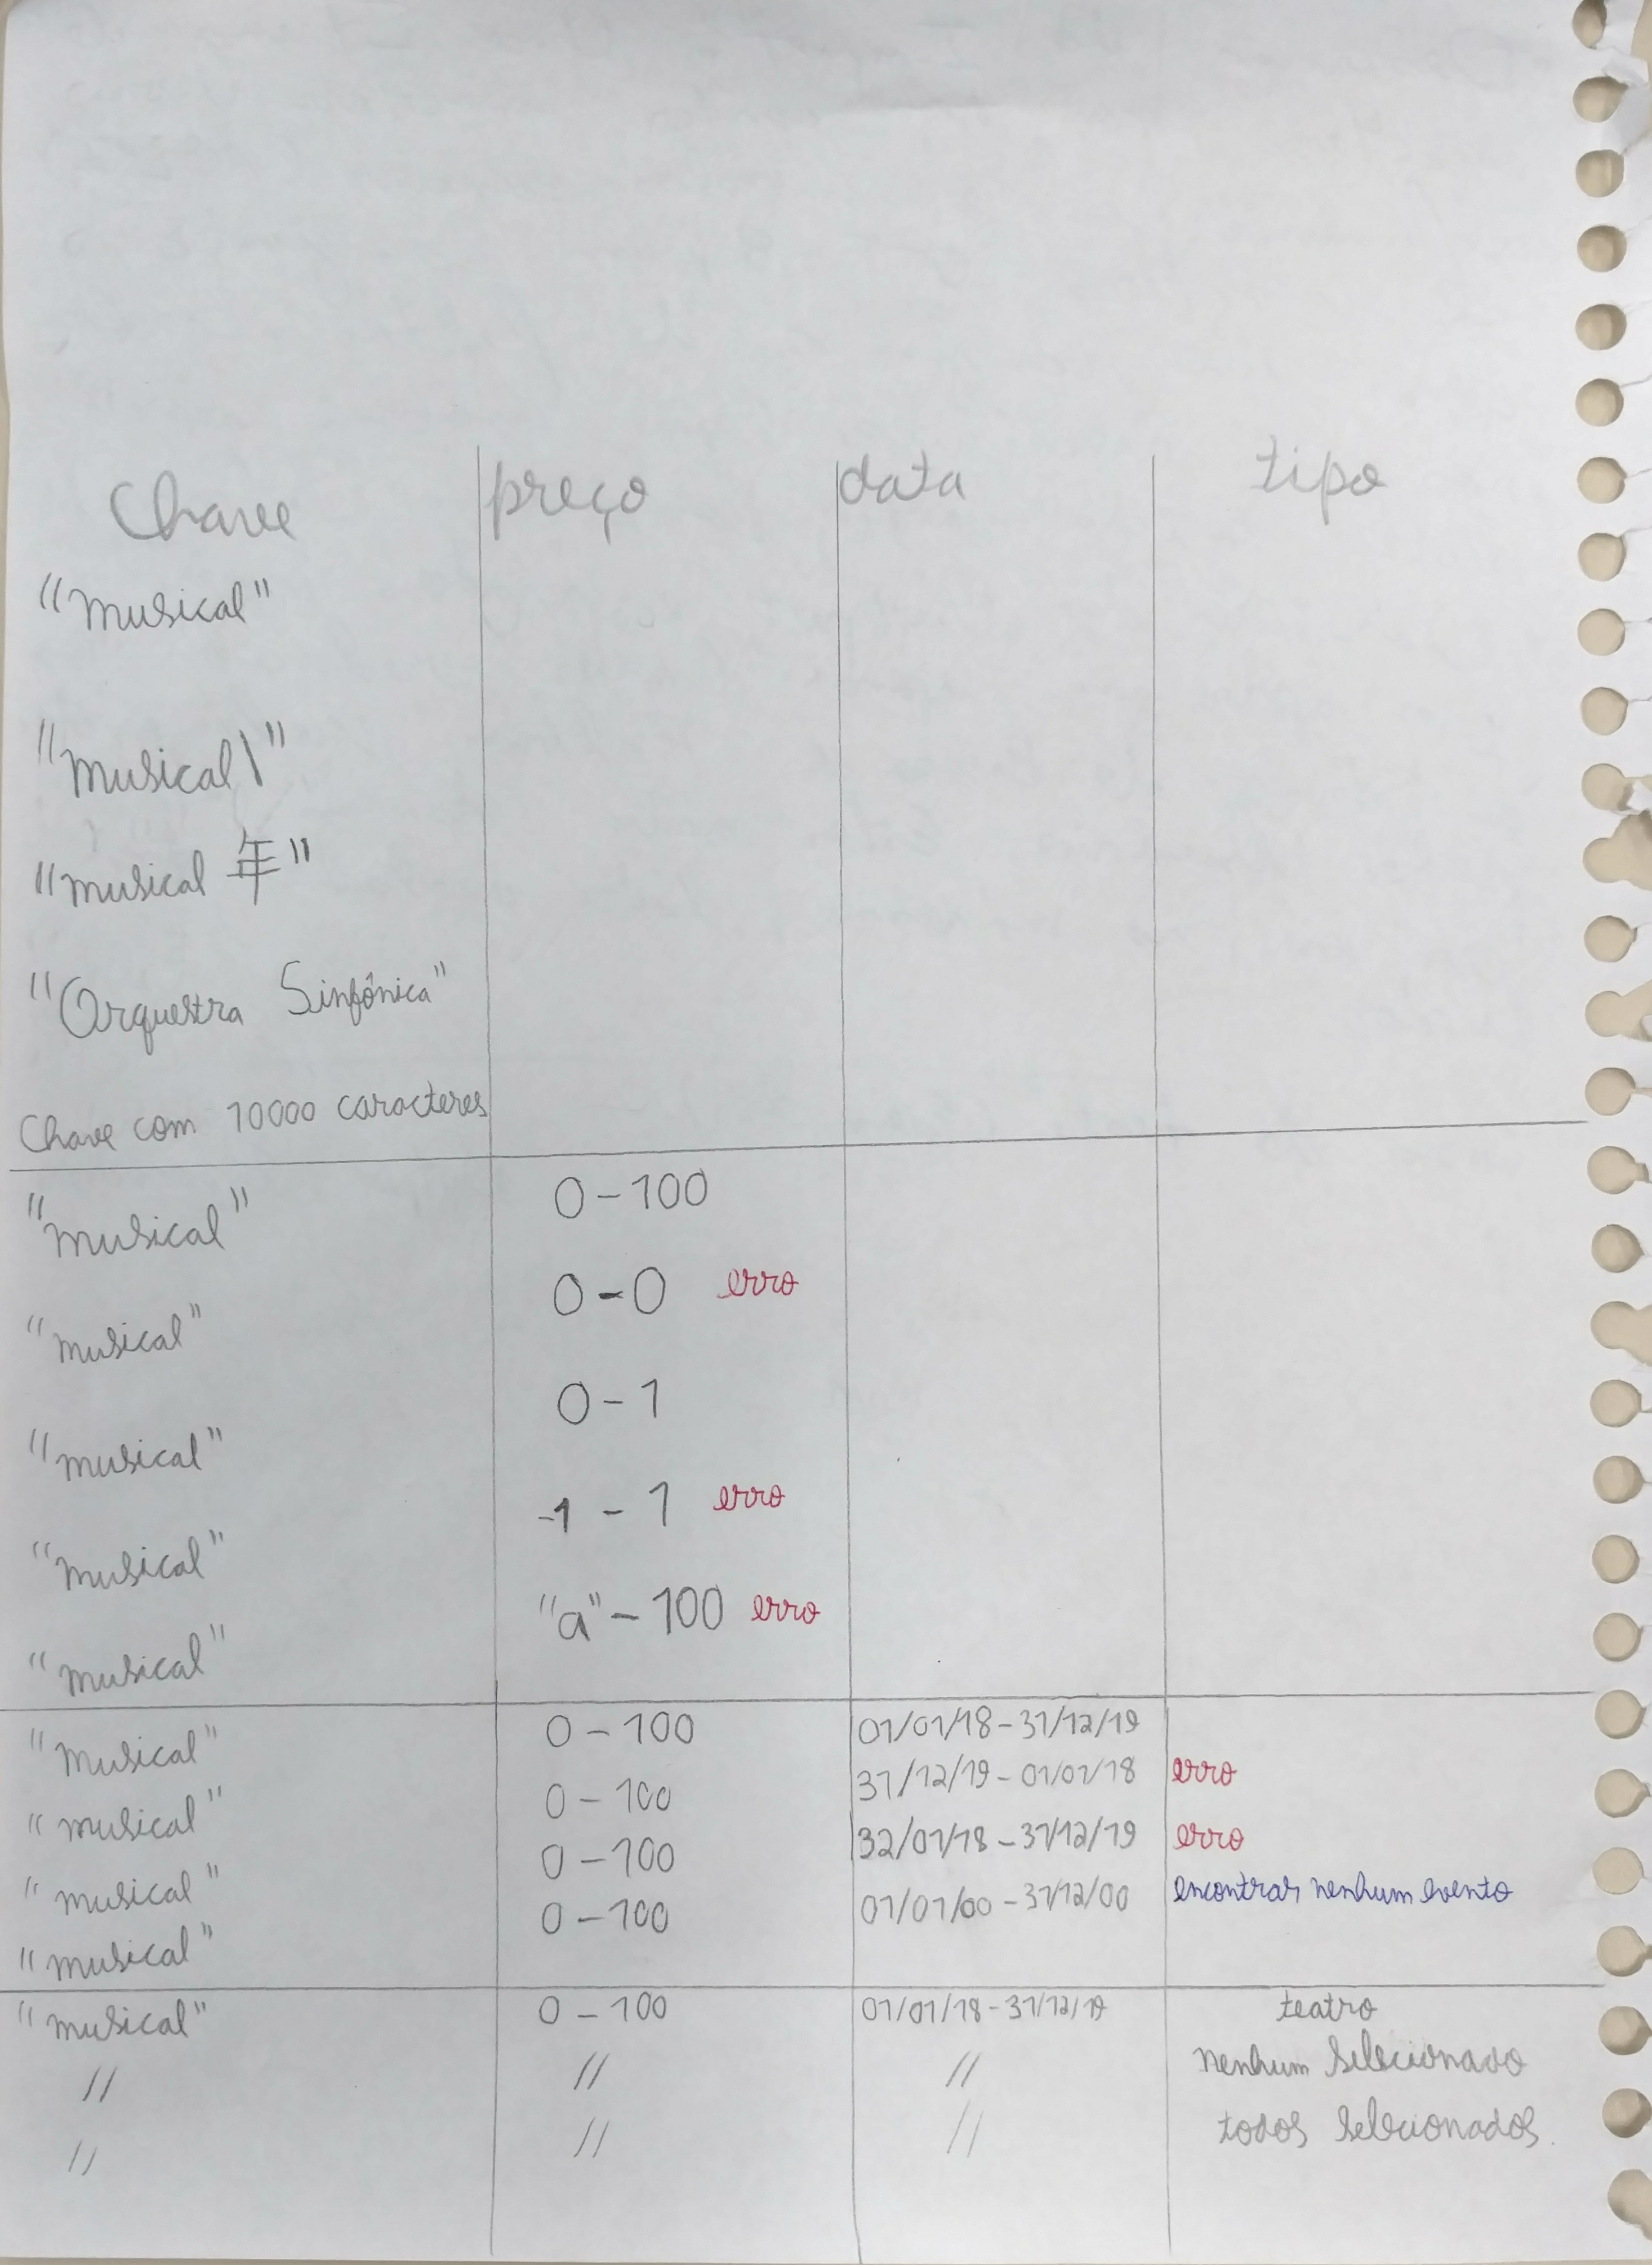 Chave preço data tipo
"musical"
"musical\"
"musical 年"
"Orquestra Sinfônica"
Chave com 10000 caracteres
"musical" 0-100
"musical" 0-0 erro
"musical" 0-1
"musical" -1 - 1 erro
"musical" "a" - 100 erro
"musical" 0-100 01/01/18-31/12/19
"musical" 0-100 31/12/19-01/01/18 erro
"musical" 0-100 32/01/18-31/12/19 erro
"musical" 0-100 01/01/00-31/12/00 encontrar nenhum evento
"musical" 0-100 01/01/18-31/12/19 teatro
// // // nenhum selecionado
// // // todos selecionados.